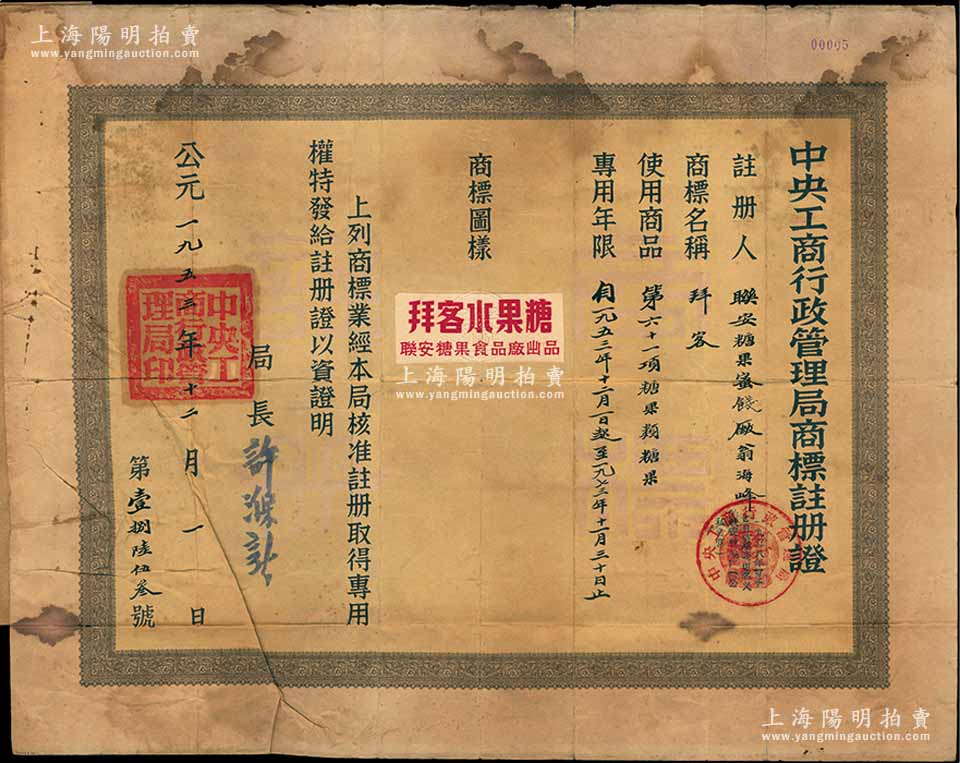 上海陽明拍賣
www.yangmingauction.com
00005
中央工商行政管理局商標註册證
註册人 聯安糖果蜜餞廠翁海峰
商標名稱 拜客
使用商品 第六十一項糖果類糖果
專用年限 自一九五三年十二月一日起至一九七三年十一月三十日止
商標圖樣
拜客水果糖
聯安糖果食品廠出品
上海陽明拍賣
www.yangmingauction.com
上列商標業經本局核准註册取得專用
權特發給註册證以資證明
局長 許滌新
公元一九五三年十二月一日
中央工
商行政管
理局印
第壹捌陸伍叁號
上海陽明拍賣
www.yangmingauction.com